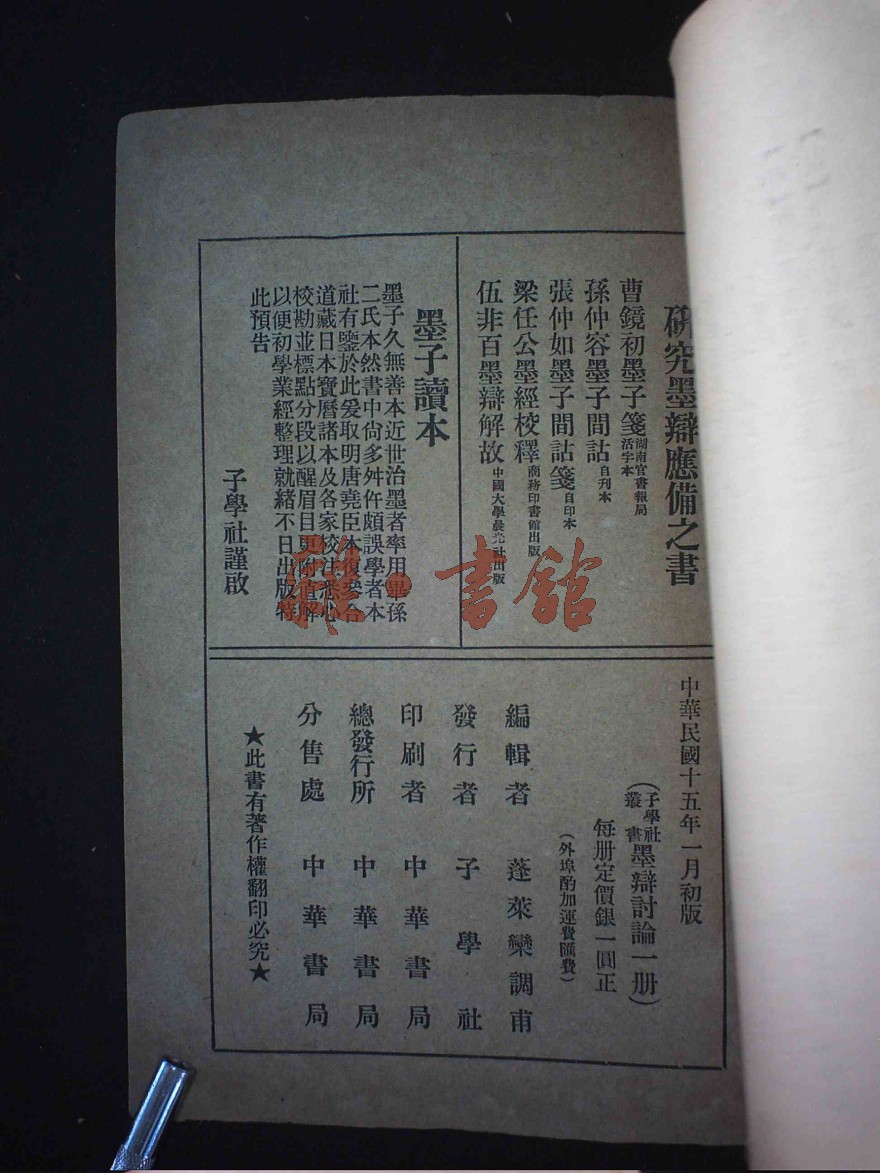 研究墨辯應備之書
曹鏡初墨子箋 湖南官書報局活字本
孫仲容墨子間詁 自刊本
張仲如墨子間詁箋 自印本
梁任公墨經校釋 商務印書館出版
伍非百墨辯解故 中國大學晨光社出版
墨子讀本
墨子久無善本近世治墨者率用畢孫
二氏本然書中尚多舛仵頗誤學者本
社有鑒於此爰取明唐堯臣本復參合
道藏日本寶曆諸本及各家校注悉心
校勘並標點分段以醒眉目更附直解
以便初學業經整理就緒不日出版特
此預告
子學社謹啟
中華民國十五年一月初版
(子學社叢書墨辯討論一册)
每册定價銀一圓正
(外埠酌加運費匯費)
編輯者 蓬萊欒調甫
發行者 子學社
印刷者 中華書局
總發行所 中華書局
分售處 中華書局
★此書有著作權翻印必究★
雜·書館